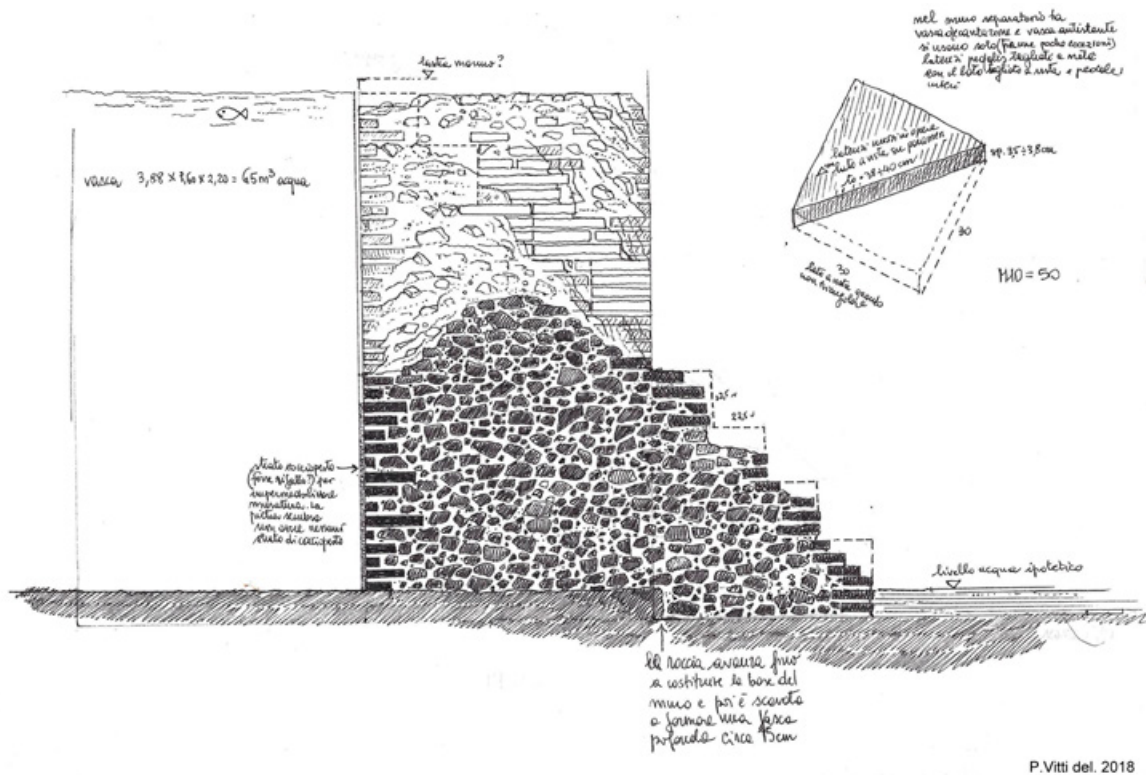 nel muro separatorio tra
vasca decantazione e vasca antistante
si usano solo (tranne poche eccezioni)
laterizi pedalis tagliati a metà
con il lato tagliato a vista e pedale
interi
lastra marmo?
vasca 3,88 x 3,60 x 2,20 = 65 m³ acqua
laterizi messi in opera
lato a vista su paramen
to = 38÷40 cm
sp. 3,5÷3,8 cm
30
30
lato a vista quando
non triangolare
M10 = 50
22,5
22,5
strato cocciopesto
(forse rifatto?) per
impermeabilizzare
muratura. La
pietra sembra
non avere nessuno
strato di cocciopesto
livello acqua ipotetico
la roccia avanza fino
a costituire la base del
muro e poi è scavata
a formare una vasca
profonda circa 15 cm
P.Vitti del. 2018